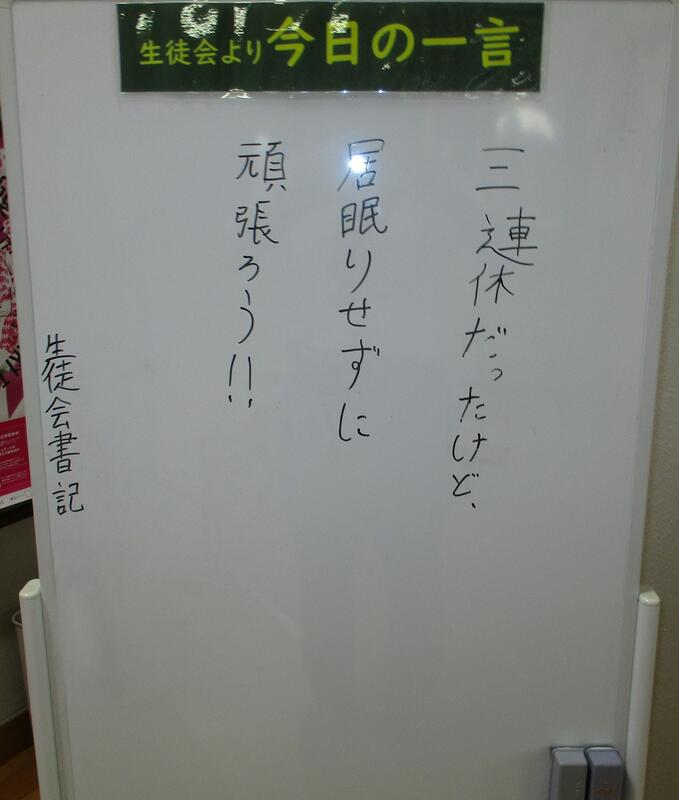 生徒会より 今日の一言
三連休だったけど、
居眠りせずに
頑張ろう!!
生徒会書記